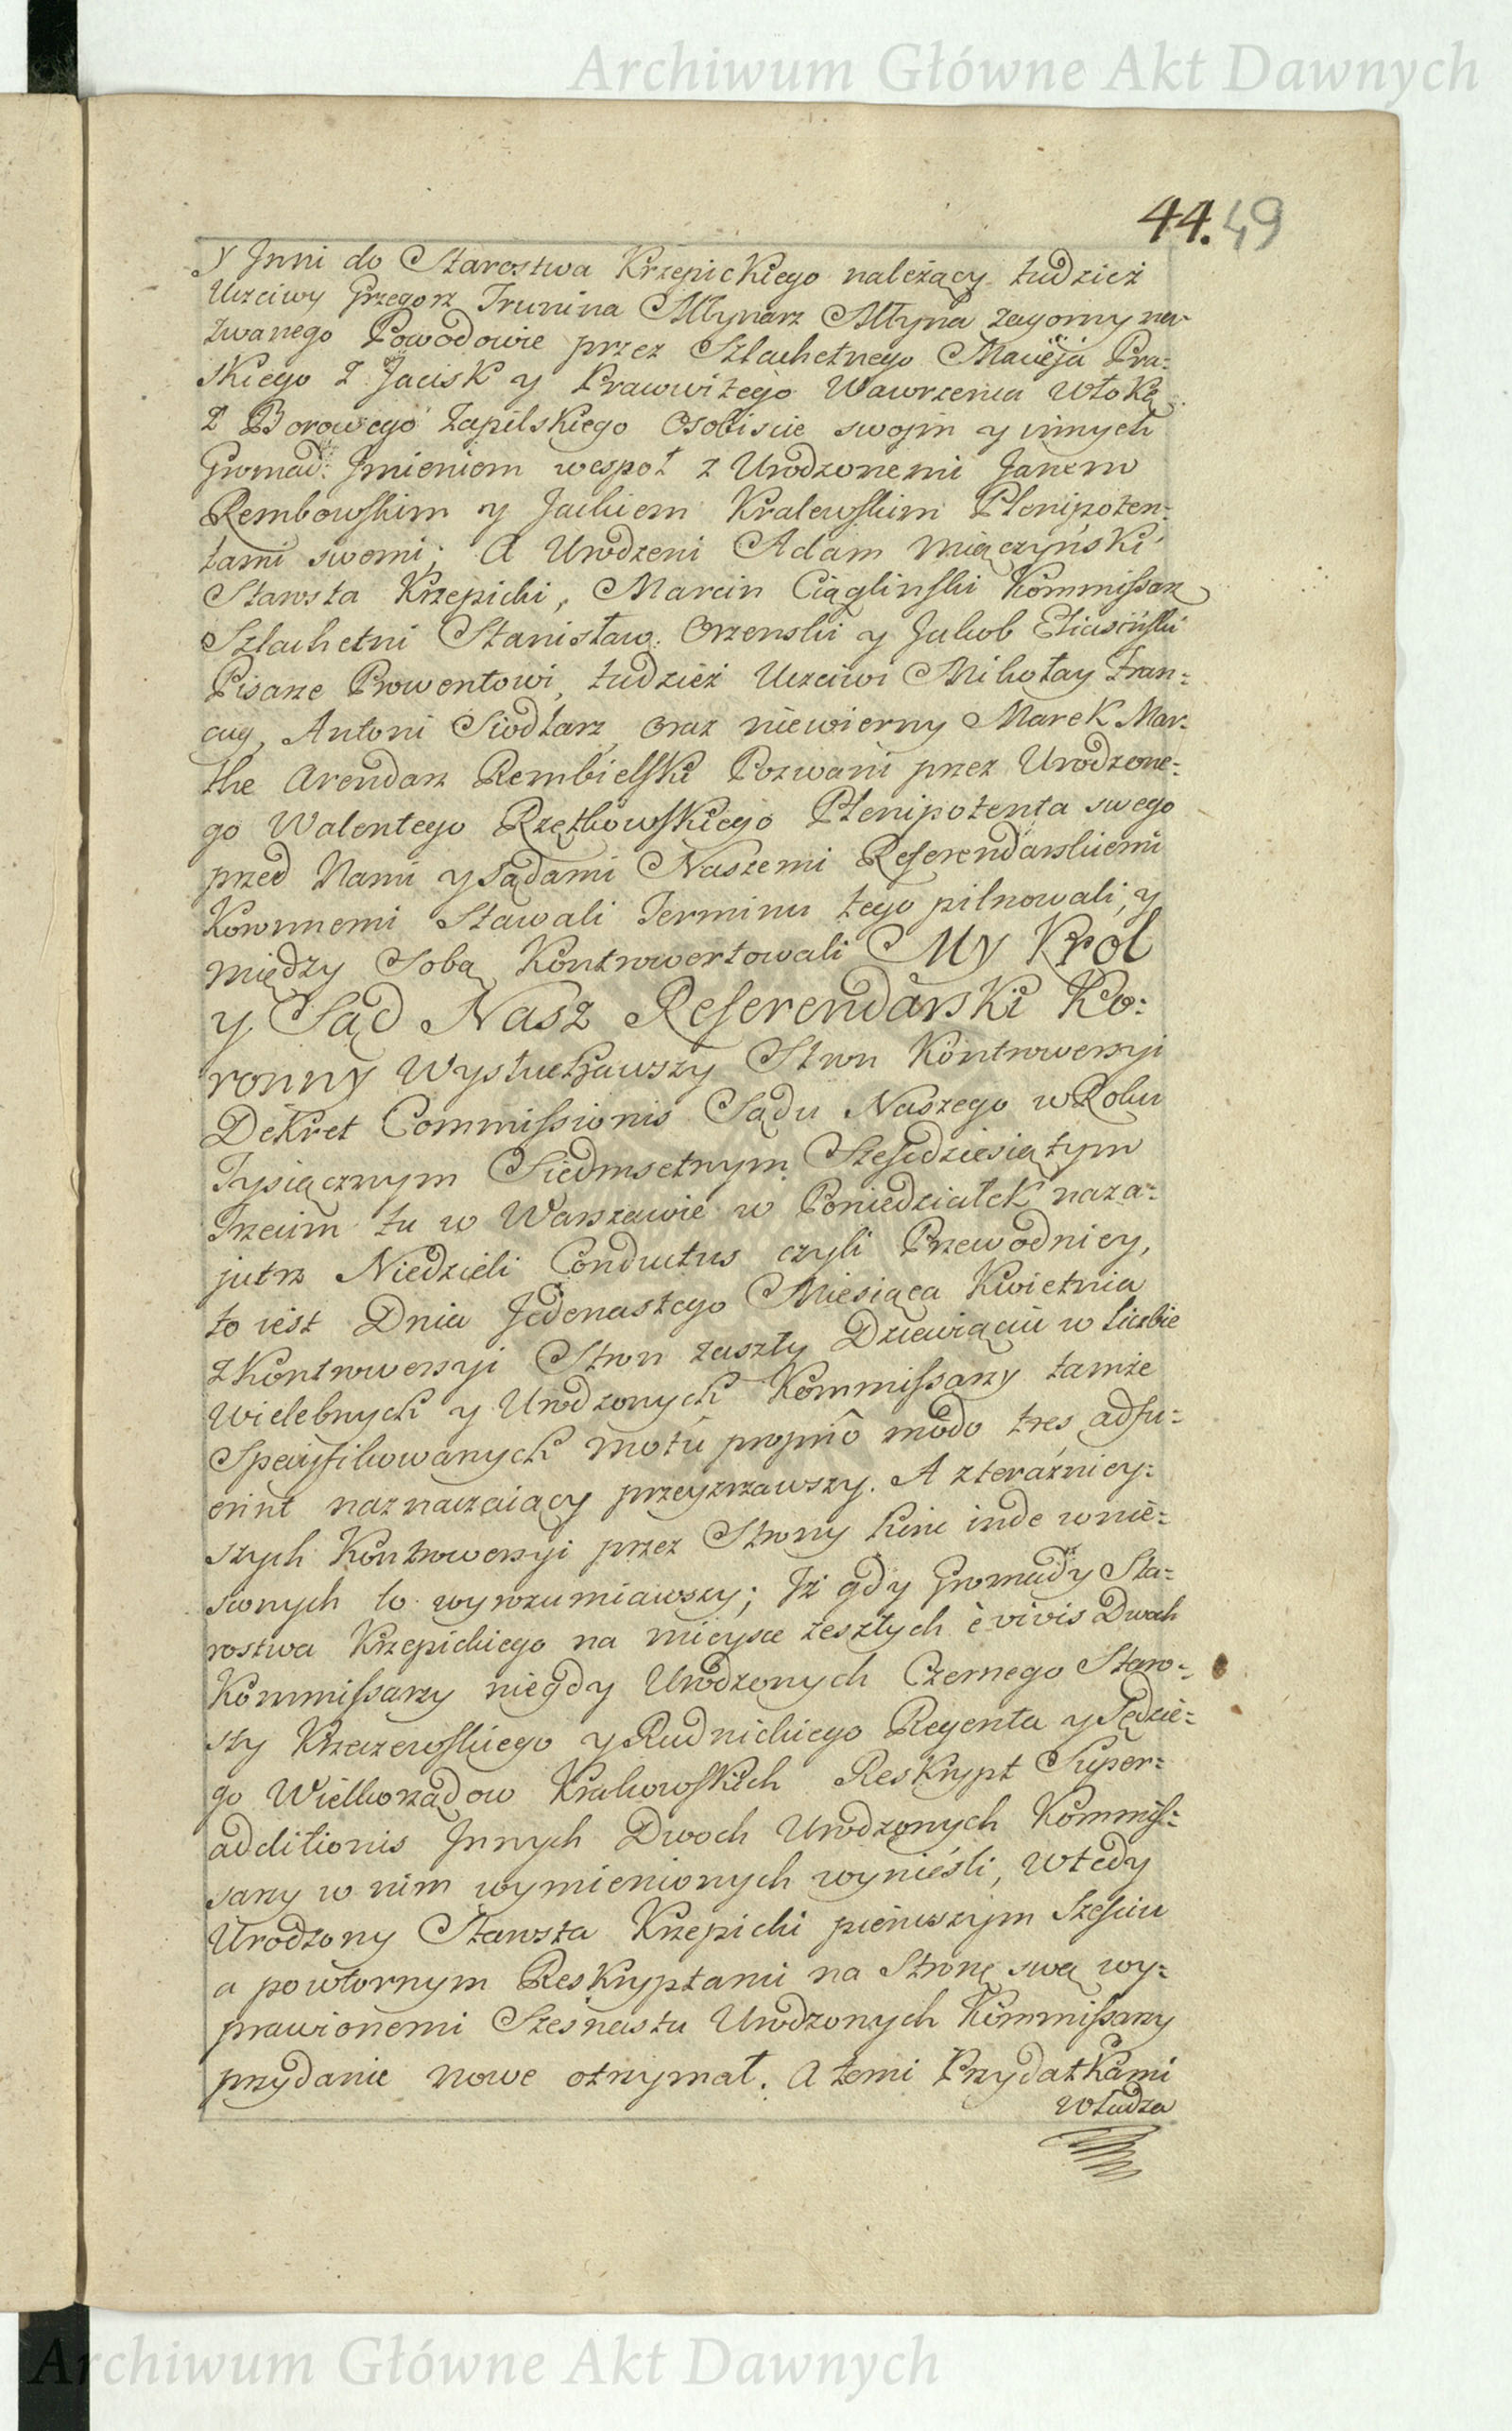 Archiwum Główne Akt Dawnych
44. 49
y Jnni do Starostwa Krzepickiego należący tudzież
Uczciwy Grzegorz Trunina Młynarz Młyna Zagorny na-
zwanego Powodowie przez Szlachetnego Macieja Pra:
skiego z Jacisk y Prawwitego Wawrzenca Włokę
z Borowego Zapilskiego Osobiscie swoim y innych
Gromad: Jmieniem wespoł z Urodzonemi Janem
Rembowskim y Jackiem Kralewskim Plenipoten:
tami swemi; A Urodzeni Adam Miączyński
Starosta Krzepicki, Marcin Ciągliński Kommissarz
Szlachetni Stanisław Orzenski y Jakob Eliasiński
Pisarze Prowentowi, tudzież Uczciwi Mikołay Fran:
cug, Antoni Siodlarz oraz niewierny Marek Mar:
the Arendarz Rembielski Pozwani przez Urodzone:
go Walentego Rzętkowskiego Plenipotenta swego
przed Nami y Sądami Naszemi Referendarskiemi
Koronnemi Stawali Terminu tego pilnowali, y
między Sobą Kontrowertowali My Krol
y Sąd Nasz Referendarski Ko:
ronny Wysłuchawszy Stron Kontrowersyi
Dekret Commissionis Sądu Naszego w Roku
Tysiącznym Siedmsetnym Szesćdziesiątym
Trzecim tu w Warszawie w Poniedziałek naza:
jutrz Niedzieli Conductus czyli Przewodniey,
to iest Dnia Jedenastego Miesiąca Kwietnia
z Kontrowersyi Stron zaszły Dziewiąciu w liczbie
Wielebnych y Urodzonych Kommissarzy tamże
Specyfikowanych motu proprio modo tres adfu:
erint naznaczaiący przeyzrzawszy. A z teraźniey:
szych Kontrowersyi przez Strony hinc inde wnie:
sionych to wyrozumiawszy; Jż gdy Gromady Sta:
rostwa Krzepickiego na mieysce zeszłych è vivis Dwoch
Kommissarzy niegdy Urodzonych Czernego Staro:
sty Krzeczewskiego y Rudnickiego Regenta y Sędzie:
go Wielkorządow Krakowskich Reskrypt Super:
additionis Jnnych Dwoch Urodzonych Kommis:
sarzy w nim wymienionych wynieśli, wtedy
Urodzony Starosta Krzepicki pierwszym Szesciu
a powtornym Reskryptami na Stronę swą wy:
prawionemi Szesnastu Urodzonych Kommissarzy
przydanie nowe otrzymał. A temi Przydatkami
władza
Archiwum Główne Akt Dawnych